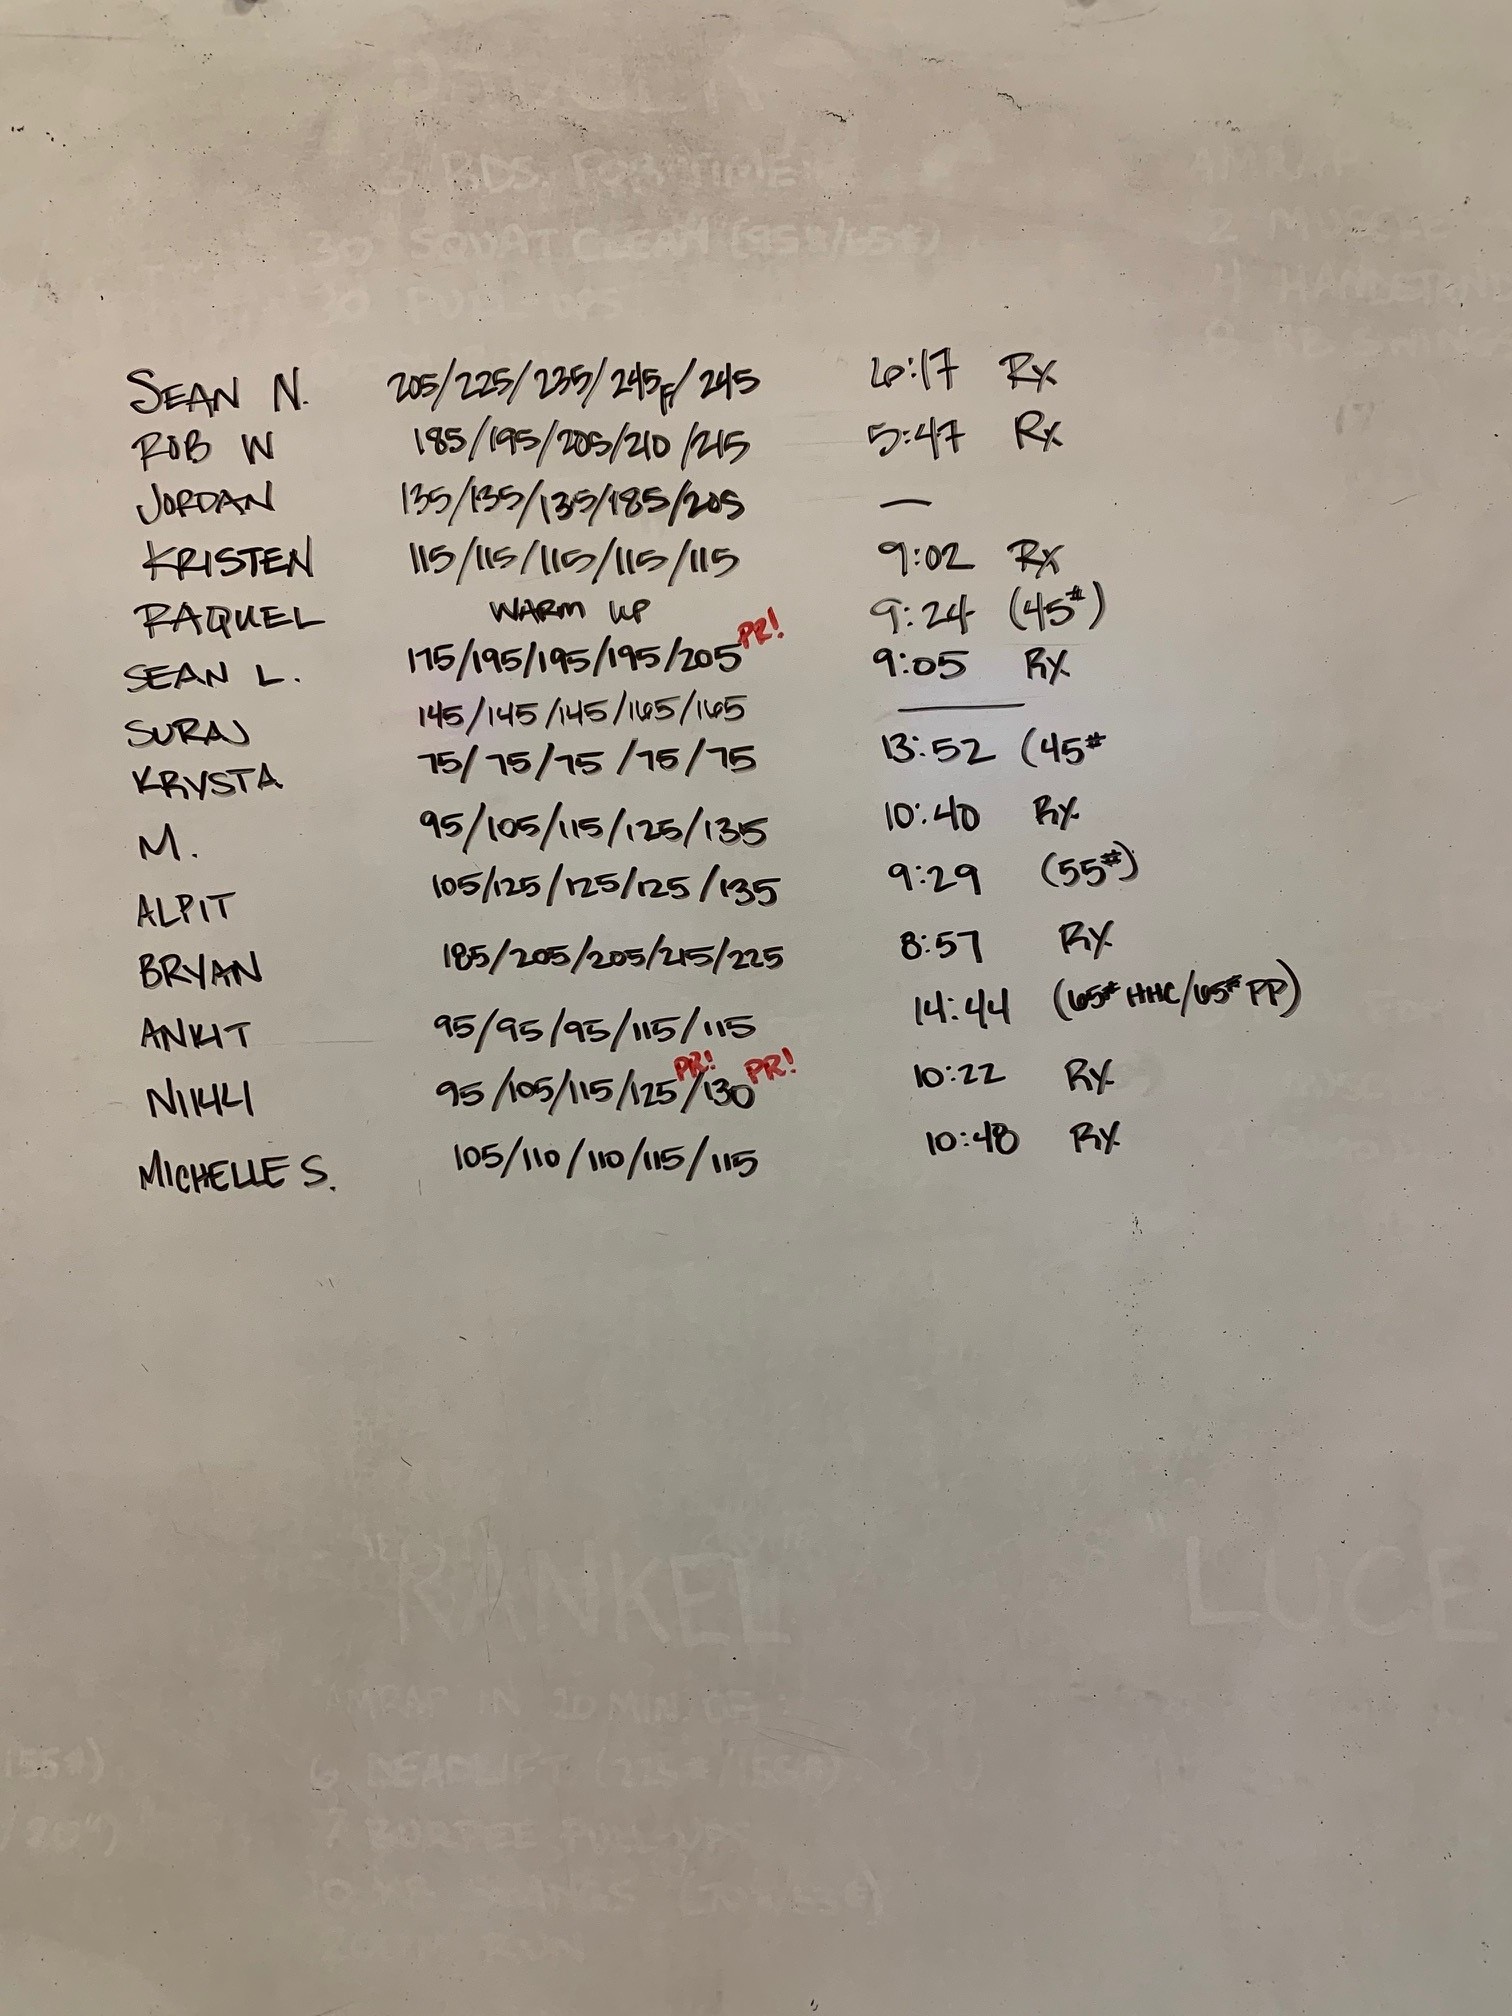 3 RDS. FOR TIME
30 SQUAT CLEAN (95#/65#)
30 PULL UPS
2 MUSCLE
4 HANDSTAND
8 KB SWINGS
SEAN N. 205/225/235/245F/245 6:17 Rx
ROB W 185/195/205/210/215 5:47 Rx
JORDAN 135/135/135/185/205 —
KRISTEN 115/115/115/115/115 9:02 Rx
RAQUEL WARM UP 9:24 (45#)
SEAN L. 175/195/195/195/205 PR! 9:05 Rx
SURAJ 145/145/145/165/165 —
KRYSTA 75/75/75/75/75 13:52 (45#
M. 95/105/115/125/135 10:40 Rx
ALPIT 105/125/125/125/135 9:29 (55#)
BRYAN 185/205/205/215/225 8:57 Rx
ANKIT 95/95/95/115/115 14:44 (65# HHC/65# PP)
NIKKI 95/105/115/125 PR!/130 PR! 10:22 Rx
MICHELLE S. 105/110/110/115/115 10:48 Rx
"RANKEL "LUCE
AMRAP IN 20 MIN. OF:
155#) 6 DEADLIFT (225#/155#)
/20") 7 BURPEE PULL-UPS
10 KB SWINGS
RUN